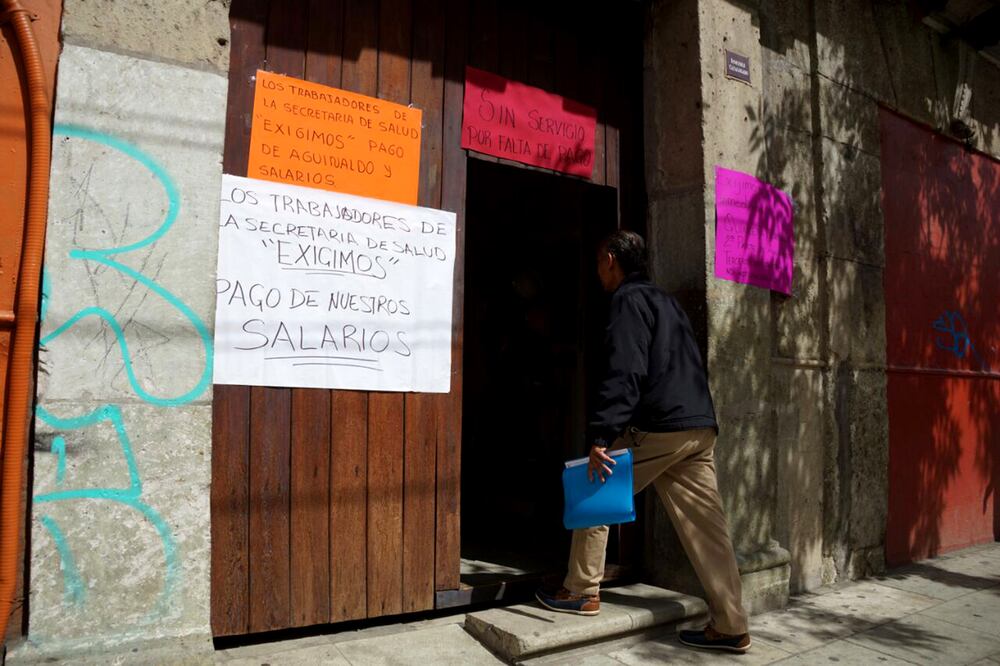 LOS TRABAJADORES DE
LA SECRETARIA DE SALUD
"EXIGIMOS" PAGO
DE AGUINALDO Y
SALARIOS
LOS TRABAJADORES DE
LA SECRETARIA DE SALUD
"EXIGIMOS"
PAGO DE NUESTROS
SALARIOS
SIN SERVICIO
POR FALTA DE PAGO